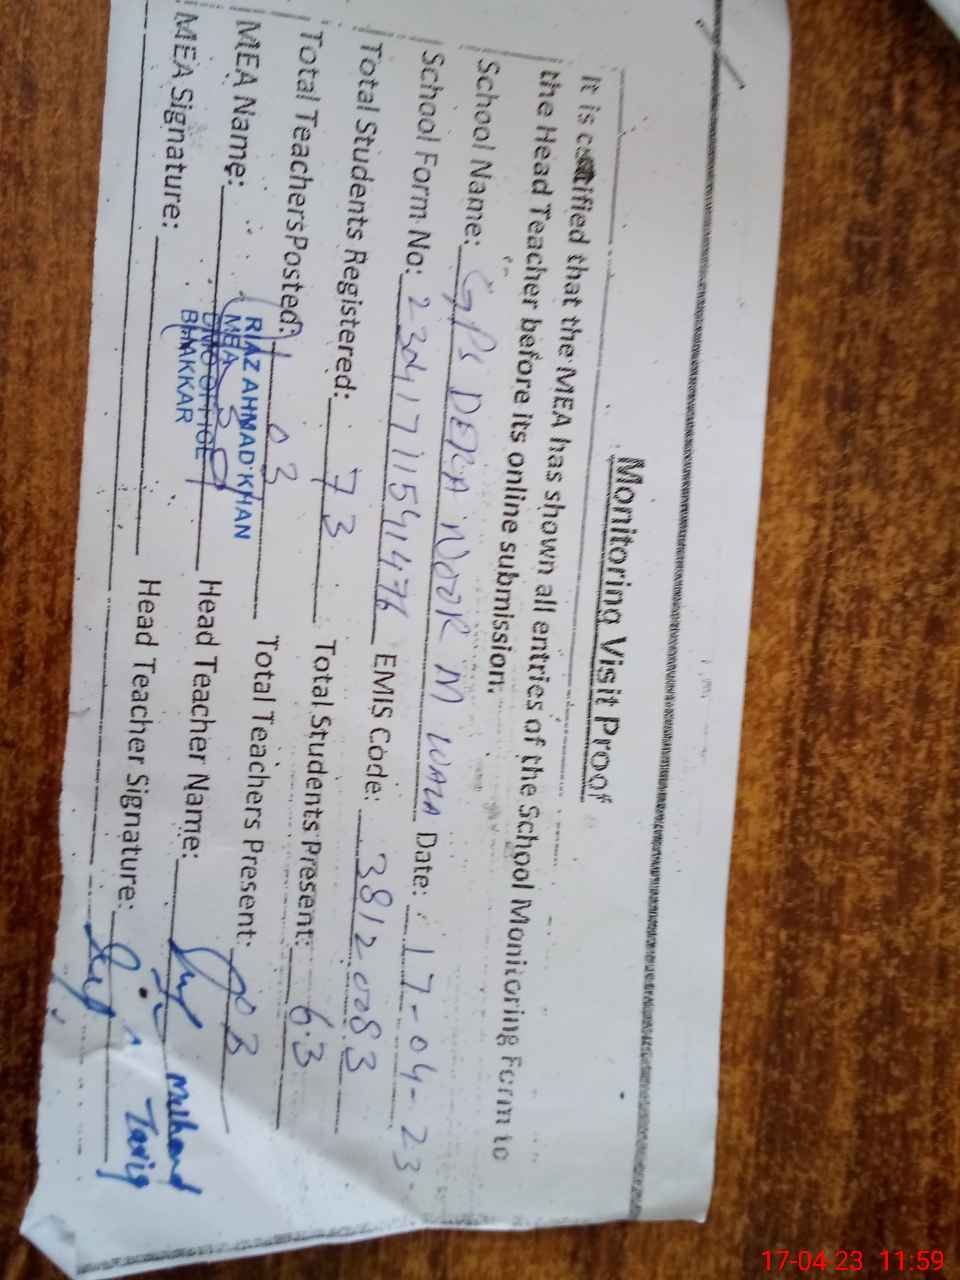 Monitoring Visit Proof
It is certified that the MEA has shown all entries of the School Monitoring Form to
the Head Teacher before its online submission.
School Name: GPS DERA NOOR M WALA Date: 17-04-23
School Form No: EMIS Code: 38120083
Total Students Registered: 73 Total Students Present: 63
Total Teachers Posted: 03 Total Teachers Present: 03
MEA Name: RIAZ AHMAD KHAN Head Teacher Name: Tariq
MEA
DMO OFFICE
BHAKKAR
MEA Signature: Head Teacher Signature:
17-04-23 11:59